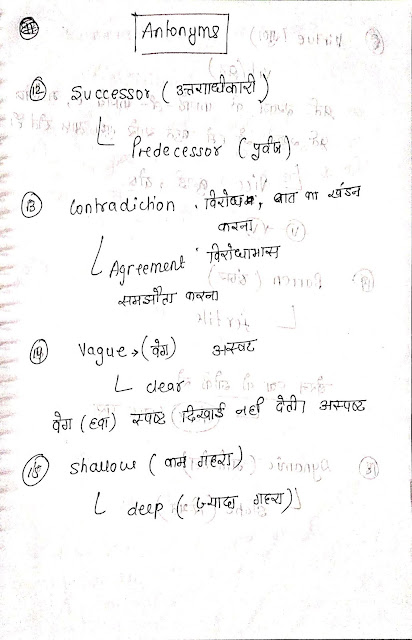 Antonyms
12 Successor (उत्तराधीकारी)
Predecessor (पूर्वज)
13 Contradiction . विरोध, बात का खंडन
करना
Agreement विरोधाभास
समझौता करना
14 Vague → (वेग) अस्पष्ट
clear
वेग (हवा) स्पष्ट दिखाई नहीं देती। अस्पष्ट
15 Shallow (कम गहरा)
deep (ज्यादा गहरा)